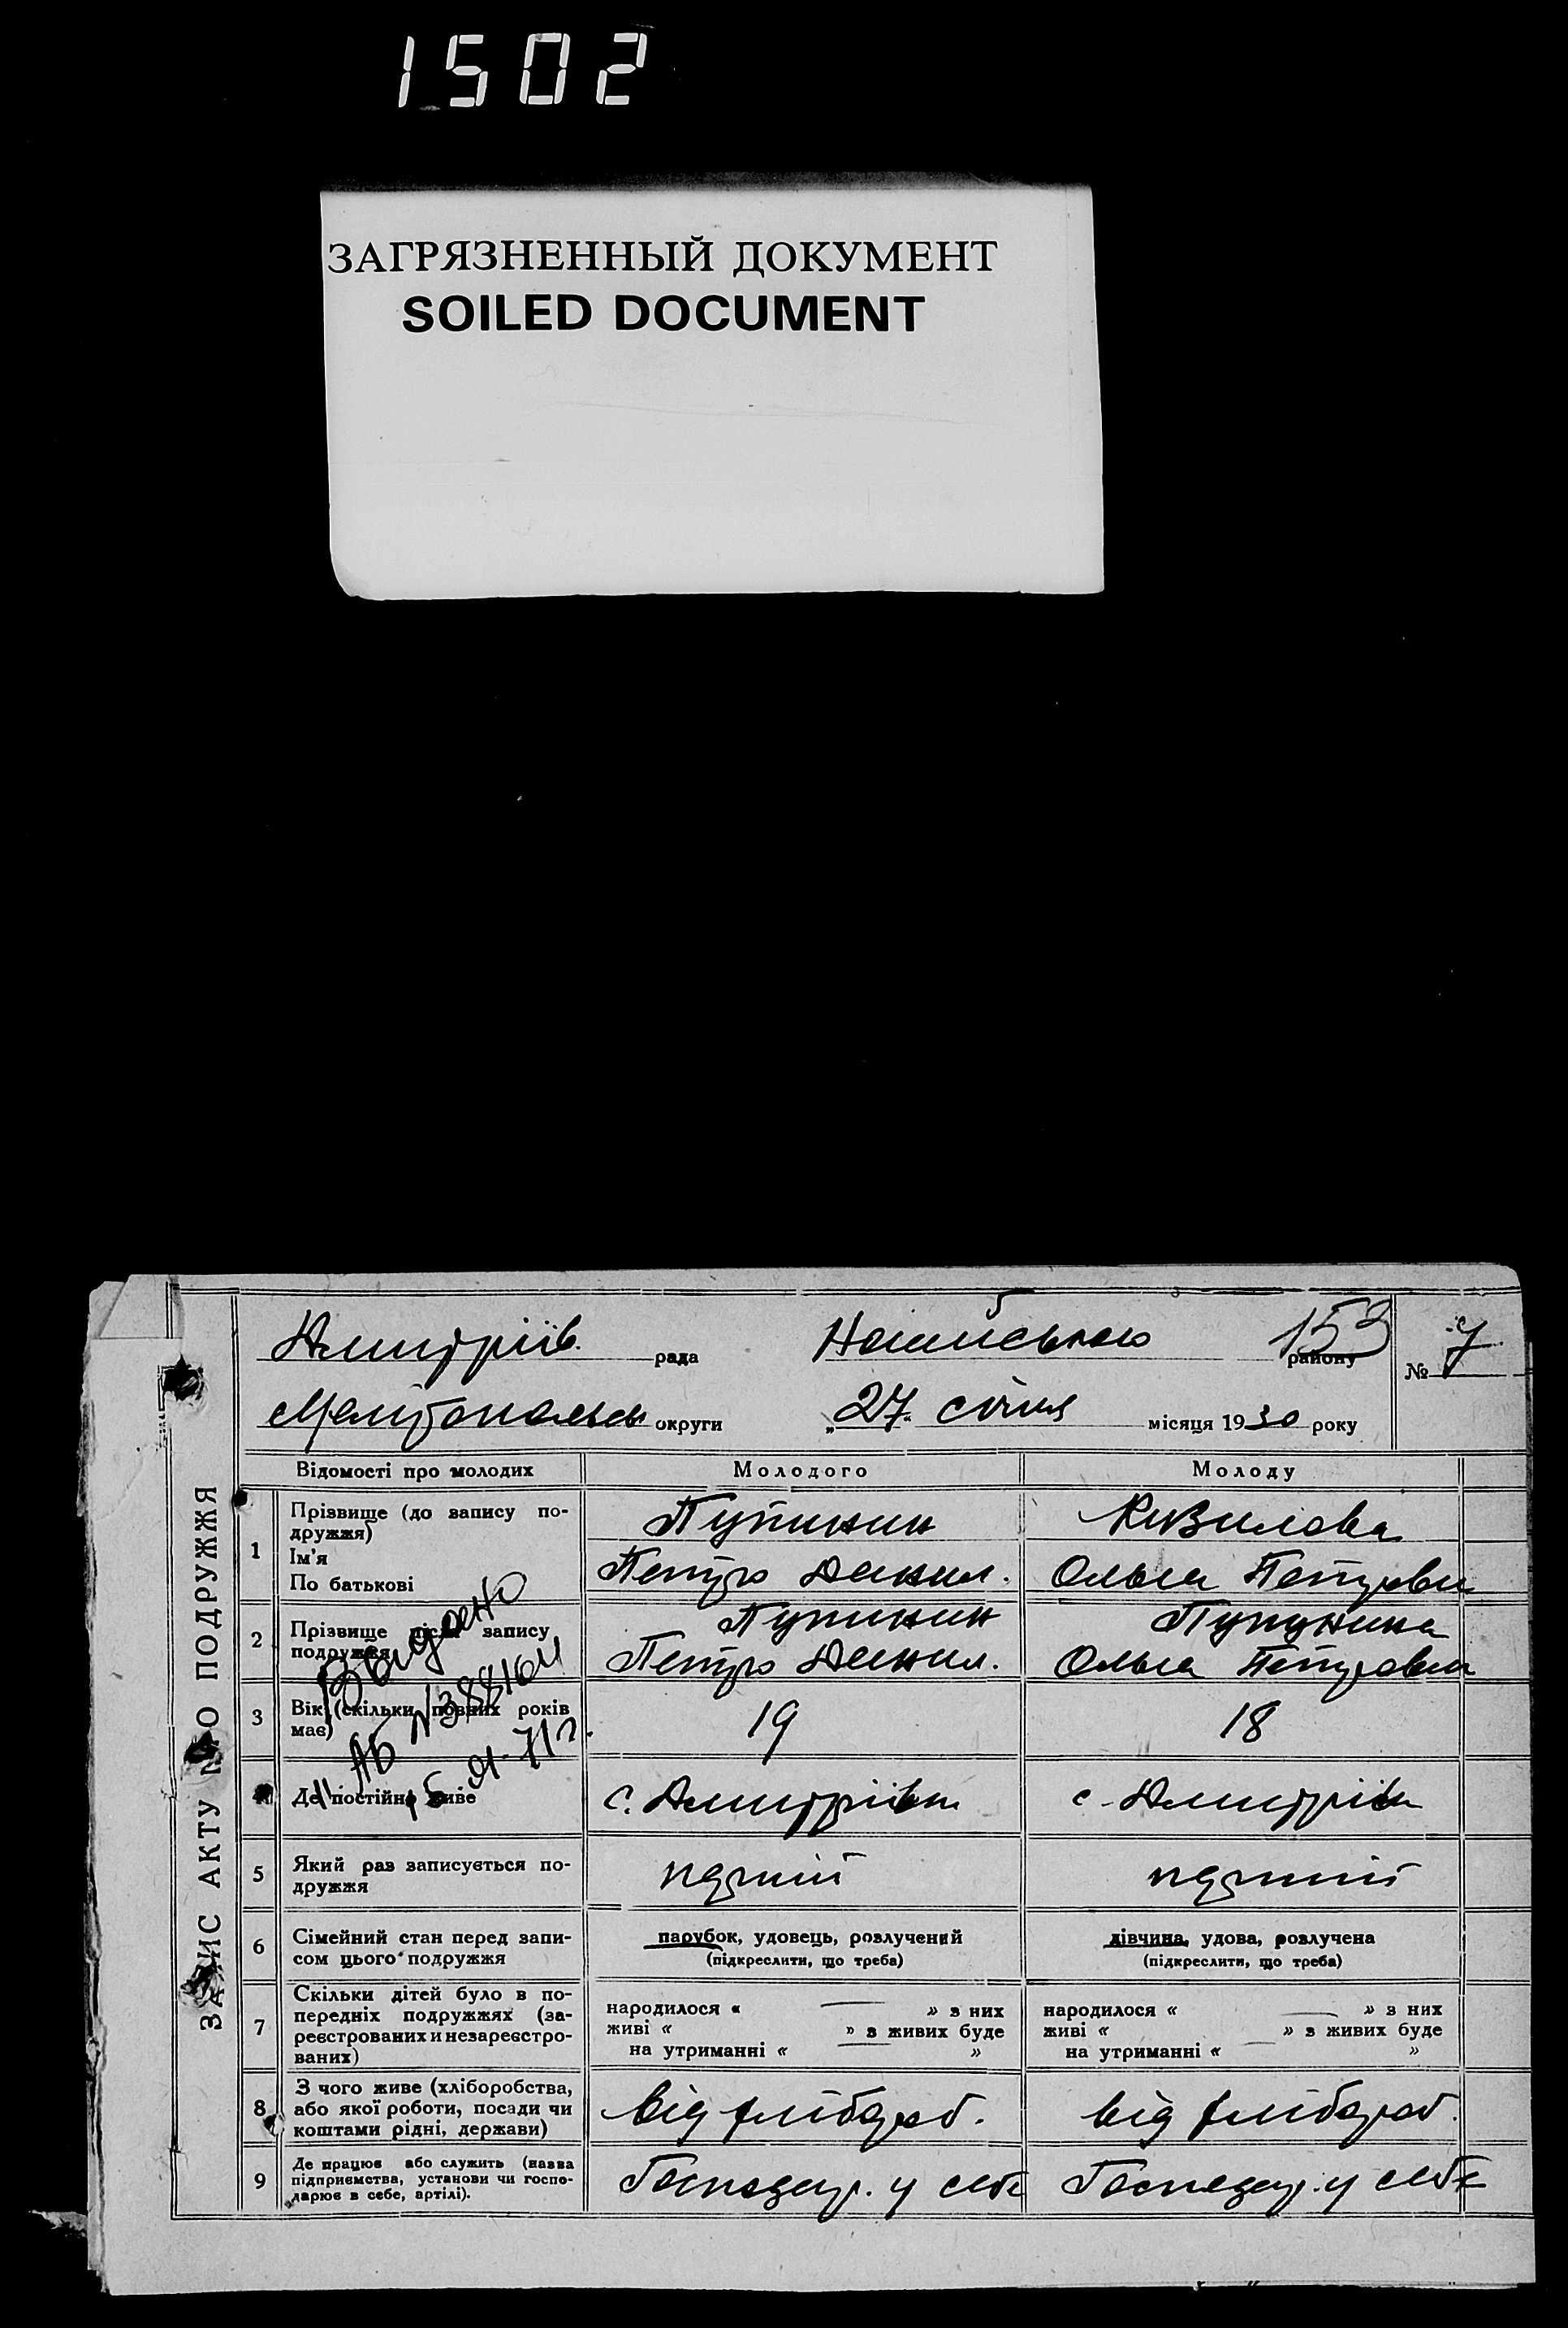 1502
ЗАГРЯЗНЕННЫЙ ДОКУМЕНТ
SOILED DOCUMENT
ЗАПИС АКТУ ПРО ПОДРУЖЖЯ
Дмитріїв. рада району 153 № 7
округи „27“ січня місяця 1930 року
Відомості про молодих Молодого Молоду
1 Прізвище (до запису по-
дружжя)
Ім'я
По батькові
Петро Данил. Ольга
2 Прізвище після запису
подружжя
Петро Данил. Ольга
Выдано
АБ
3 Вік (скільки повних років
має)
19 18
4 Де постійно живе
с. Дмитрівка с. Дмитрівка
5 Який раз записується по-
дружжя
перший перший
6 Сімейний стан перед запи-
сом цього подружжя
парубок, удовець, розлучений
(підкреслити, що треба)
дівчина, удова, розлучена
(підкреслити, що треба)
7 Скільки дітей було в по-
передніх подружжях (за-
реєстрованих и незареєстро-
ваних)
народилося « — » з них
живі « » з живих буде
на утриманні « — »
народилося « — » з них
живі « » з живих буде
на утриманні « — »
8 З чого живе (хліборобства,
або якої роботи, посади чи
коштами рідні, держави)
від хлібороб. від хлібороб.
9 Де працює або служить (назва
підприємства, установи чи госпо-
дарює в себе, артілі).
Господар. у себе Господар. у себе